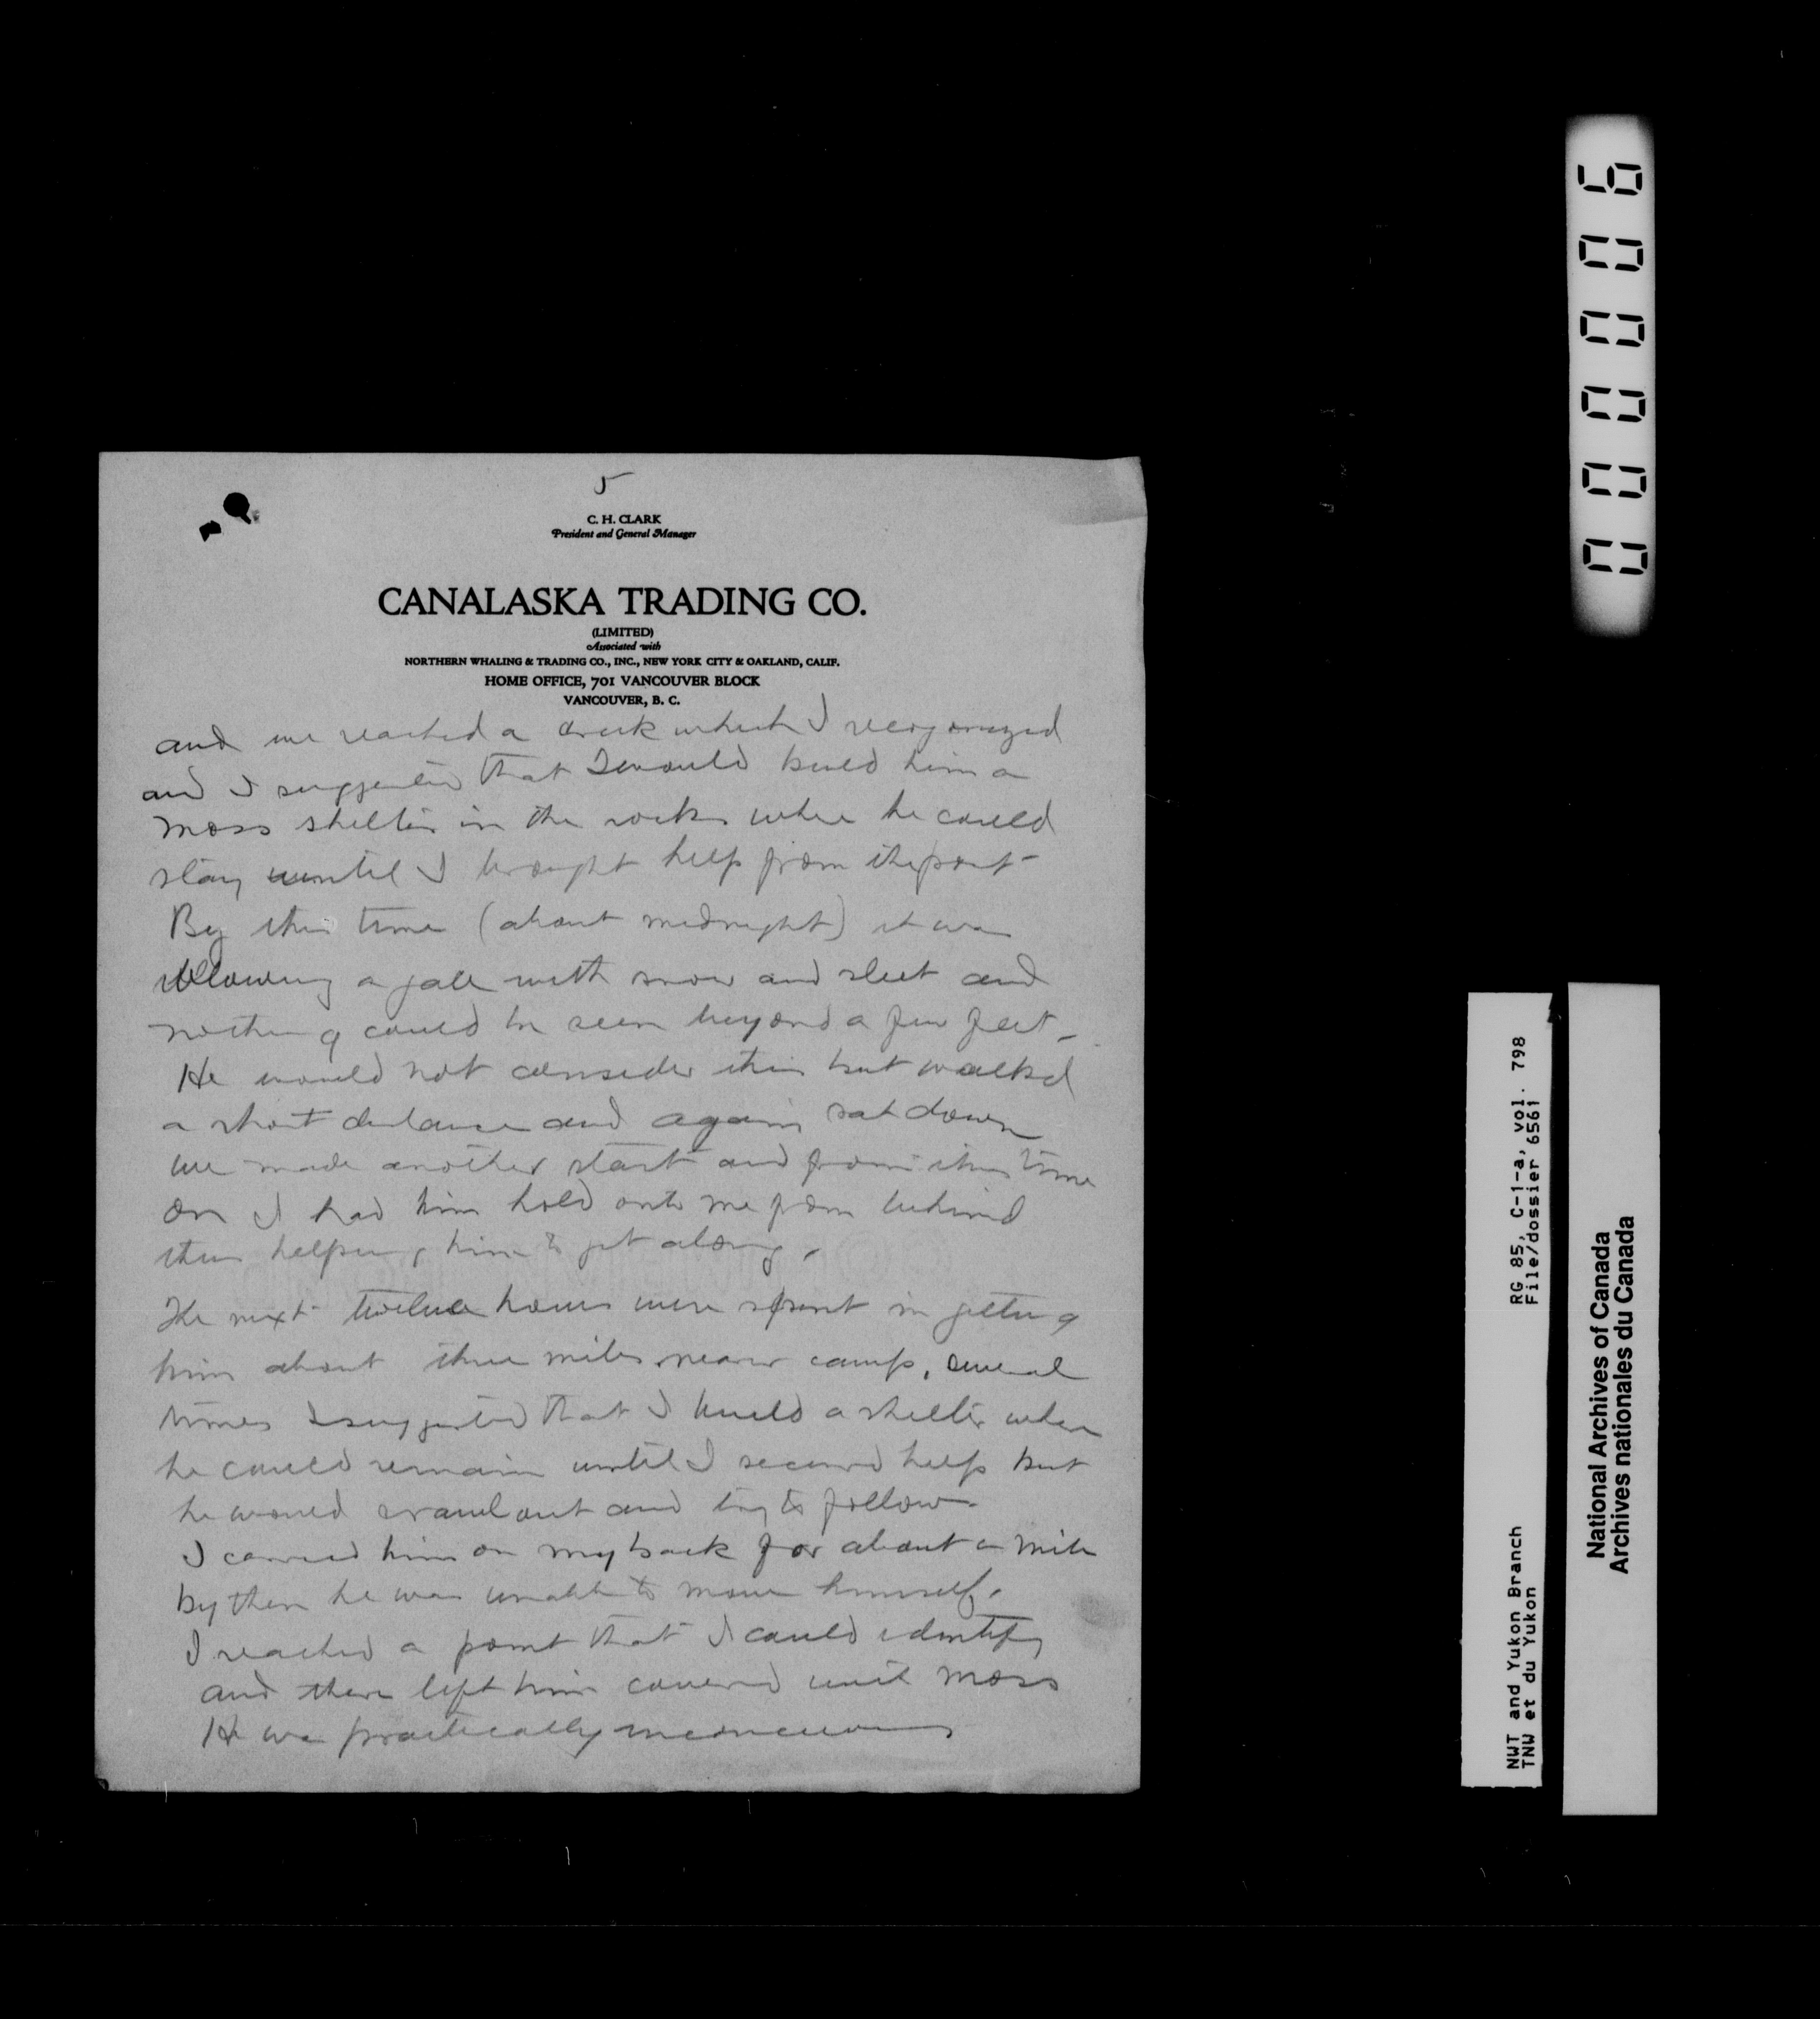 5
C. H. CLARK
President and General Manager
CANALASKA TRADING CO.
(LIMITED)
Associated with
NORTHERN WHALING & TRADING CO., INC., NEW YORK CITY & OAKLAND, CALIF.
HOME OFFICE, 701 VANCOUVER BLOCK
VANCOUVER, B. C.
and we reached a creek which I recognized
and I suggested that I would build him a
moss shelter in the rocks where he could
stay until I brought help from the post
By this time (about midnight) it was
blowing a gale with snow and sleet and
nothing could be seen beyond a few feet -
He would not consider this but walked
a short distance and again sat down
we made another start and from this time
on I had him hold onto me from behind
thus helping him to get along.
The next twelve hours were spent in getting
him about three miles nearer camp, several
times I suggested that I build a shelter where
he could remain until I secured help but
he would crawl out and try to follow.
I carried him on my back for about a mile
by then he was unable to move himself.
I reached a point that I could identify
and there left him covered with moss
He was practically unconscious
000006
RG 85, C-1-a, vol. 798
File/dossier 6561
NWT and Yukon Branch
TNW et du Yukon
National Archives of Canada
Archives nationales du Canada